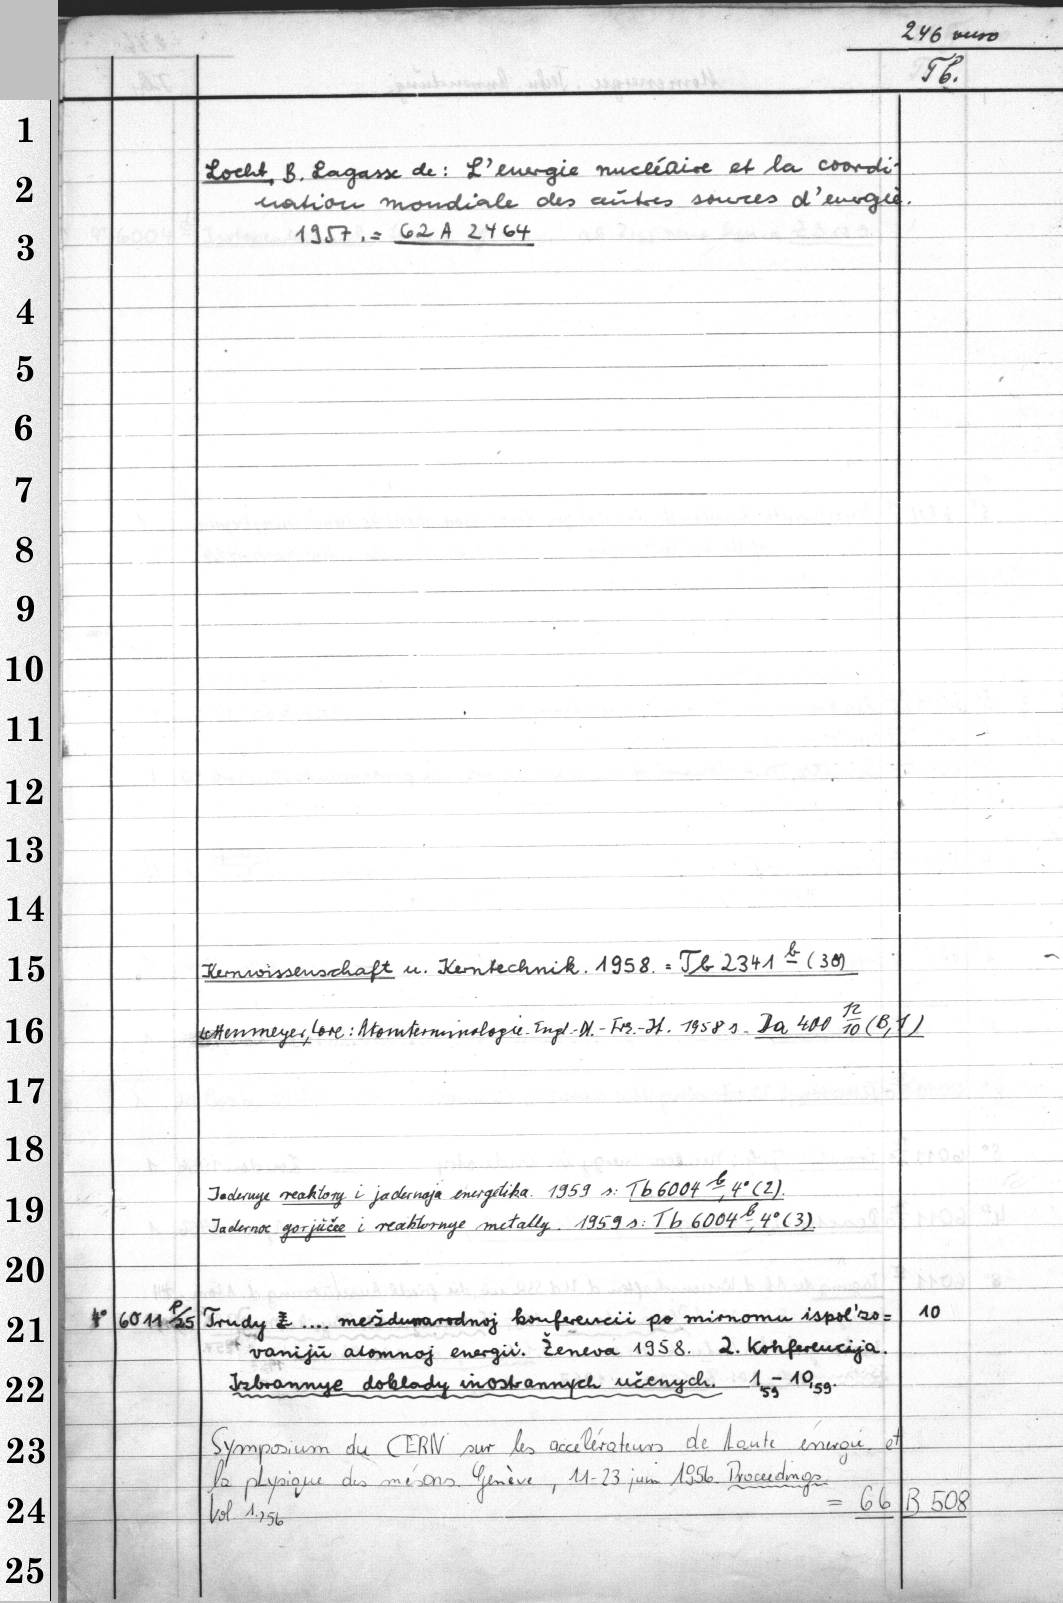 246 verso
Tb.
1
Locht, B. Lagasse de: L'energie nucléaire et la coordi-
2
nation mondiale des autres sources d'energie.
3
1957. = 62 A 2464
4
5
6
7
8
9
10
11
12
13
14
15 Kernwissenschaft u. Kerntechnik. 1958. = Tb 2341 b (30)
16 Lettenmeyer, Lore: Atomterminologie. Engl.-Dt.-Frz.-It. 1958 s. Da 400 12/10 (B,1)
17
18
Jadernye reaktory i jadernaja energetika. 1959 s: Tb 6004 b, 4° (2).
19
Jadernoe gorjučee i reaktornye metally. 1959 s: Tb 6004 b, 4° (3)
20
4° 6011 p/25 Trudy ž .... meždunarodnoj konferencii po mirnomu ispol'zo= 10
21
vaniju atomnoj energii. Ženeva 1958. 2. Konferencija.
22 Izbrannye doklady inostrannych učenych. 1,59 - 10,59.
23 Symposium du CERN sur les accélérateurs de haute énergie et
la physique des mésons. Genève, 11-23 juin 1956. Proceedings.
24 Vol 1.,56 = 66 B 508
25